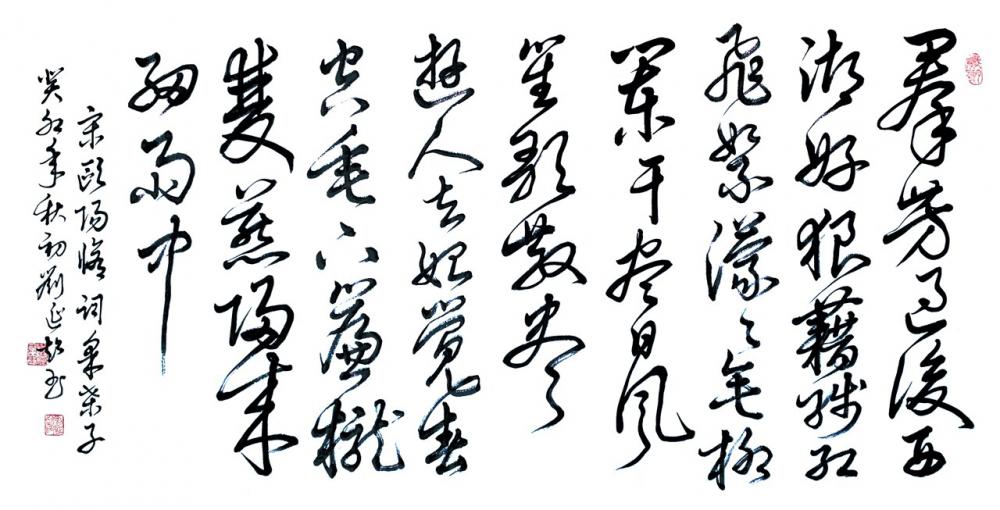 羣芳過後西
湖好狼藉殘紅
飛絮濛々垂柳
闌干盡日風
笙歌散盡
遊人去始覺春
空垂下簾櫳
雙燕歸來
細雨中
宋歐陽脩詞采桑子
癸卯年秋初劉延書